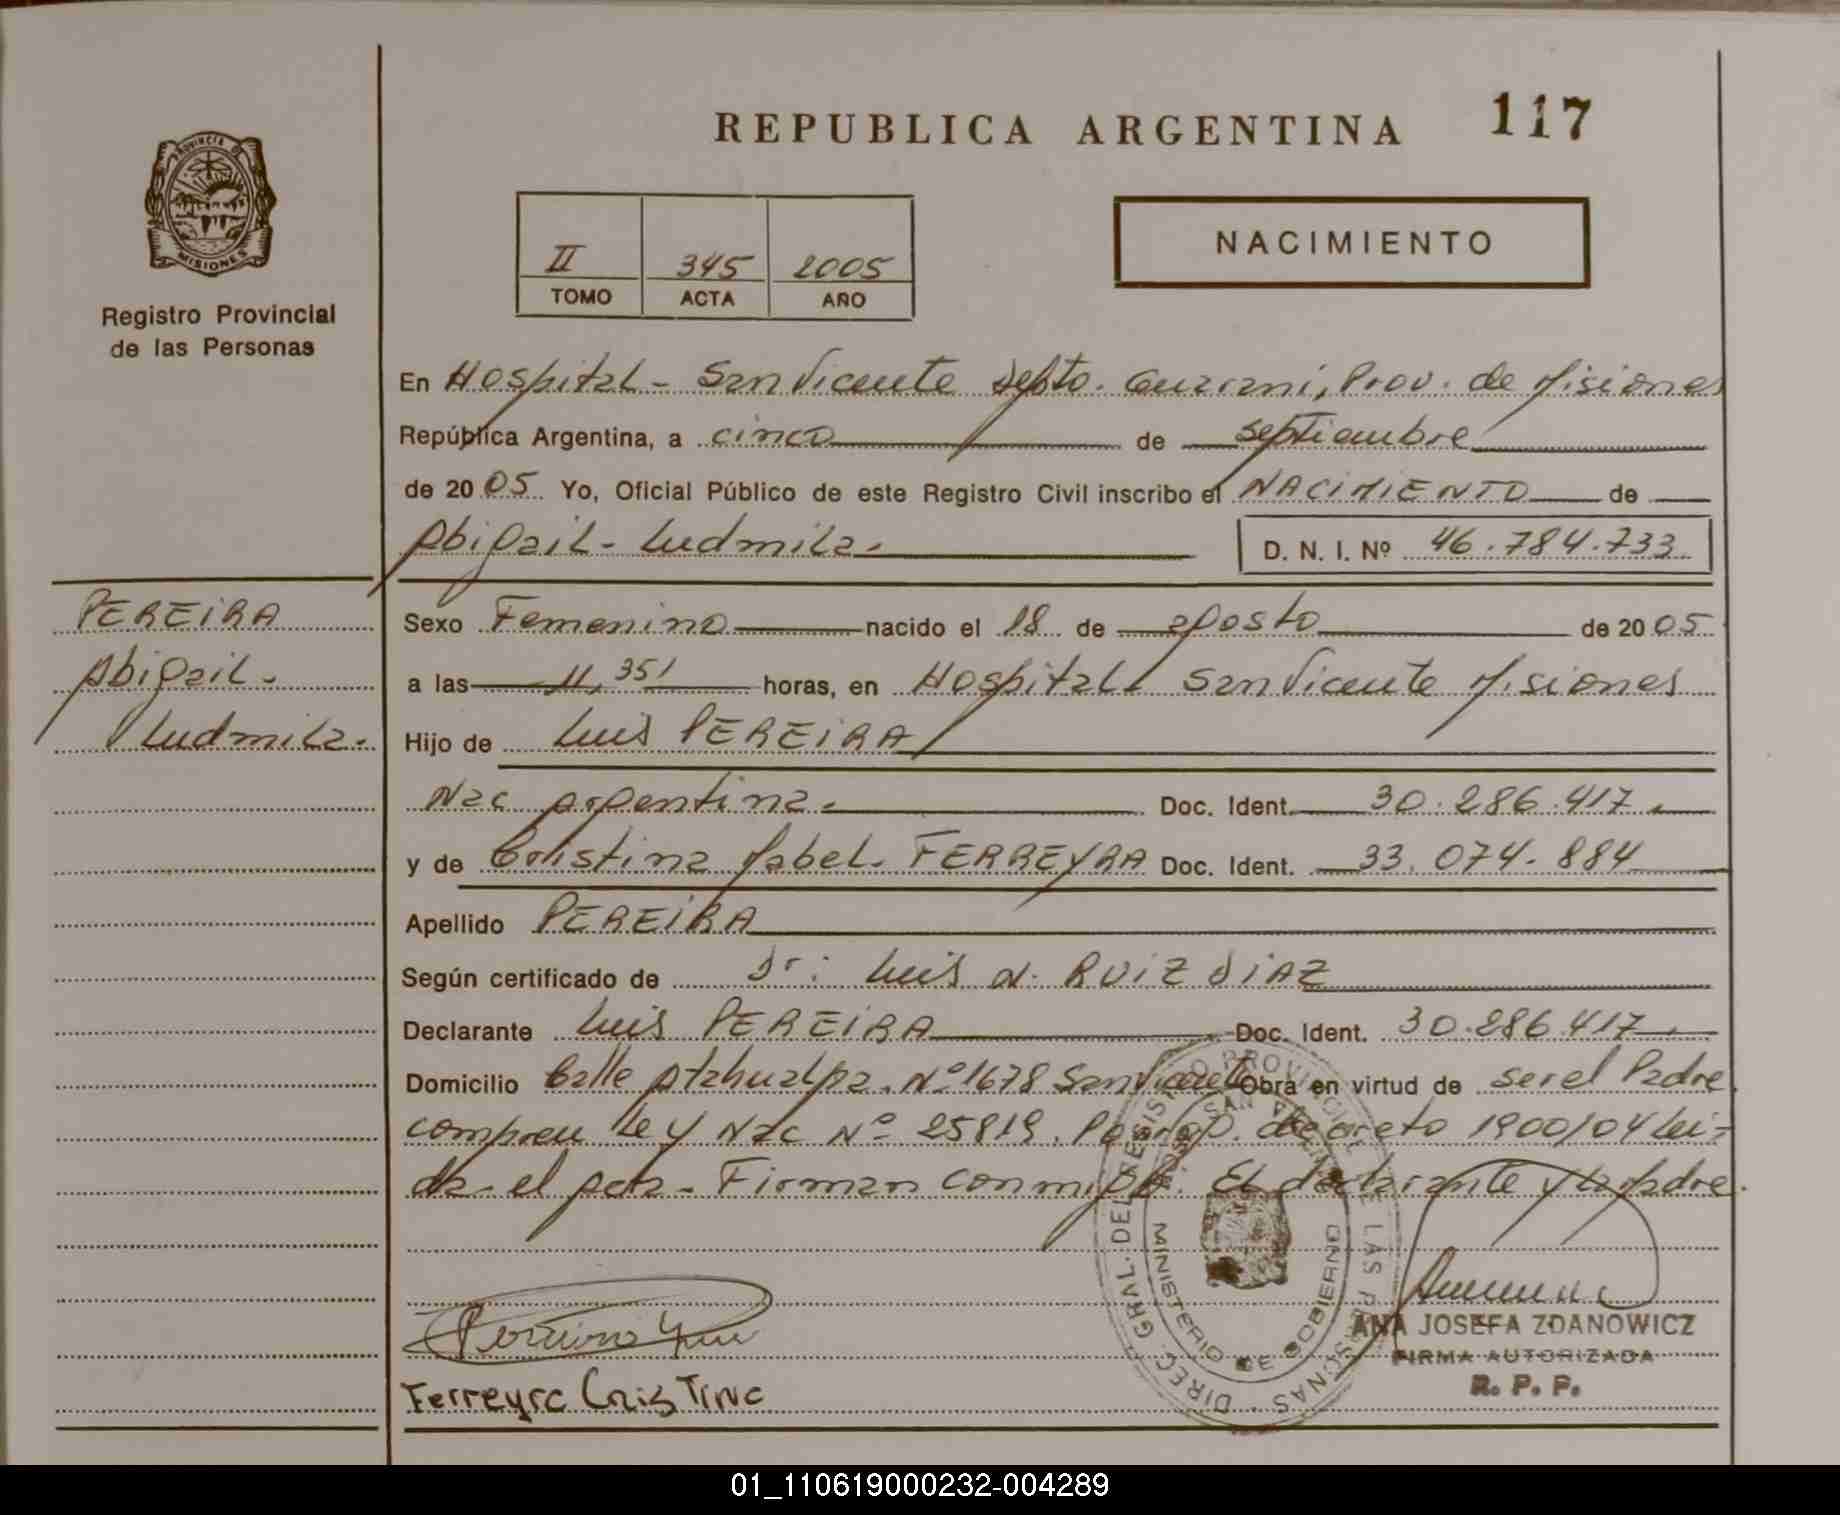 REPUBLICA ARGENTINA 117
PROVINCIA DE
MISIONES
Registro Provincial
de las Personas
II 345 2005
TOMO ACTA AÑO
NACIMIENTO
En Hospital - San Vicente Depto. Guaraní, Prov. de Misiones
República Argentina, a cinco de septiembre
de 2005 Yo, Oficial Público de este Registro Civil inscribo el NACIMIENTO de
Abigail - Ludmila.
D. N. I. Nº 46.784.733
PEREIRA
Abigail.
Ludmila.
Sexo Femenino nacido el 18 de agosto de 2005
a las 11,35' horas, en Hospital San Vicente Misiones
Hijo de Luis PEREIRA
Nac argentina. Doc. Ident. 30.286.417.
y de Cristina Isabel. FERREYRA Doc. Ident. 33.074.884
Apellido PEREIRA
Según certificado de Dr: Luis A. RUIZ DIAZ
Declarante Luis PEREIRA Doc. Ident. 30.286.417.
Domicilio Calle Atahualpa. Nº 1678 San Vicente Obra en virtud de ser el Padre
compren Ley Nac Nº 25819. decreto 1900/04 Lei-
da el acta - Firman conmigo. El declarante y la Madre.
DIREC. GRAL. DEL REGISTRO PROVINCIAL DE LAS PERSONAS
SAN VICENTE
MINISTERIO DE GOBIERNO
Ferreyra Cristina
ANA JOSEFA ZDANOWICZ
FIRMA AUTORIZADA
R. P. P.
01_110619000232-004289